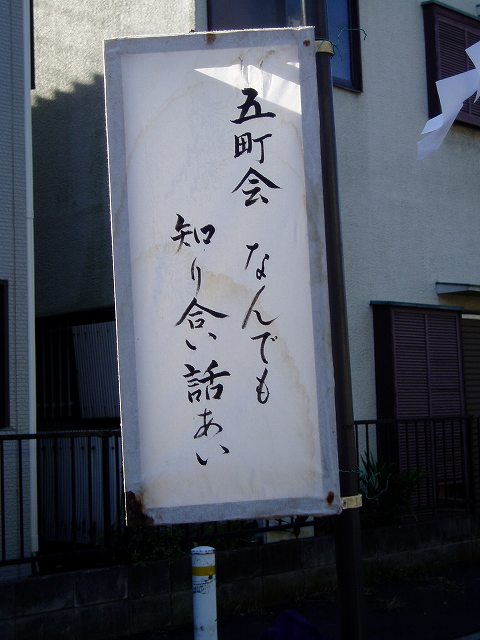 五町会 なんでも
知り合い話あい